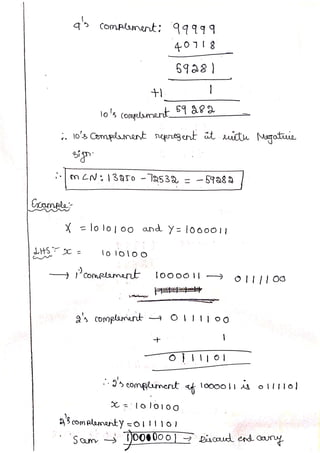 9's complement: 99999
40718
59281
+1 1
10's complement 59282
∴ 10's Complement represent it with Negative
sign.
∴ m<N: 13250 - 72532 = -59282
Example:-
X = 1010100 and Y = 1000011
LHS- x = 1010100
→ 1'complement 1000011 → 0111100
2's complement → 0111100
+ 1
0111101
∴ 2's complement of 1000011 is 0111101
x = 1010100
2's complement y = 0111101
Sum → 10010001 → Discard end carry